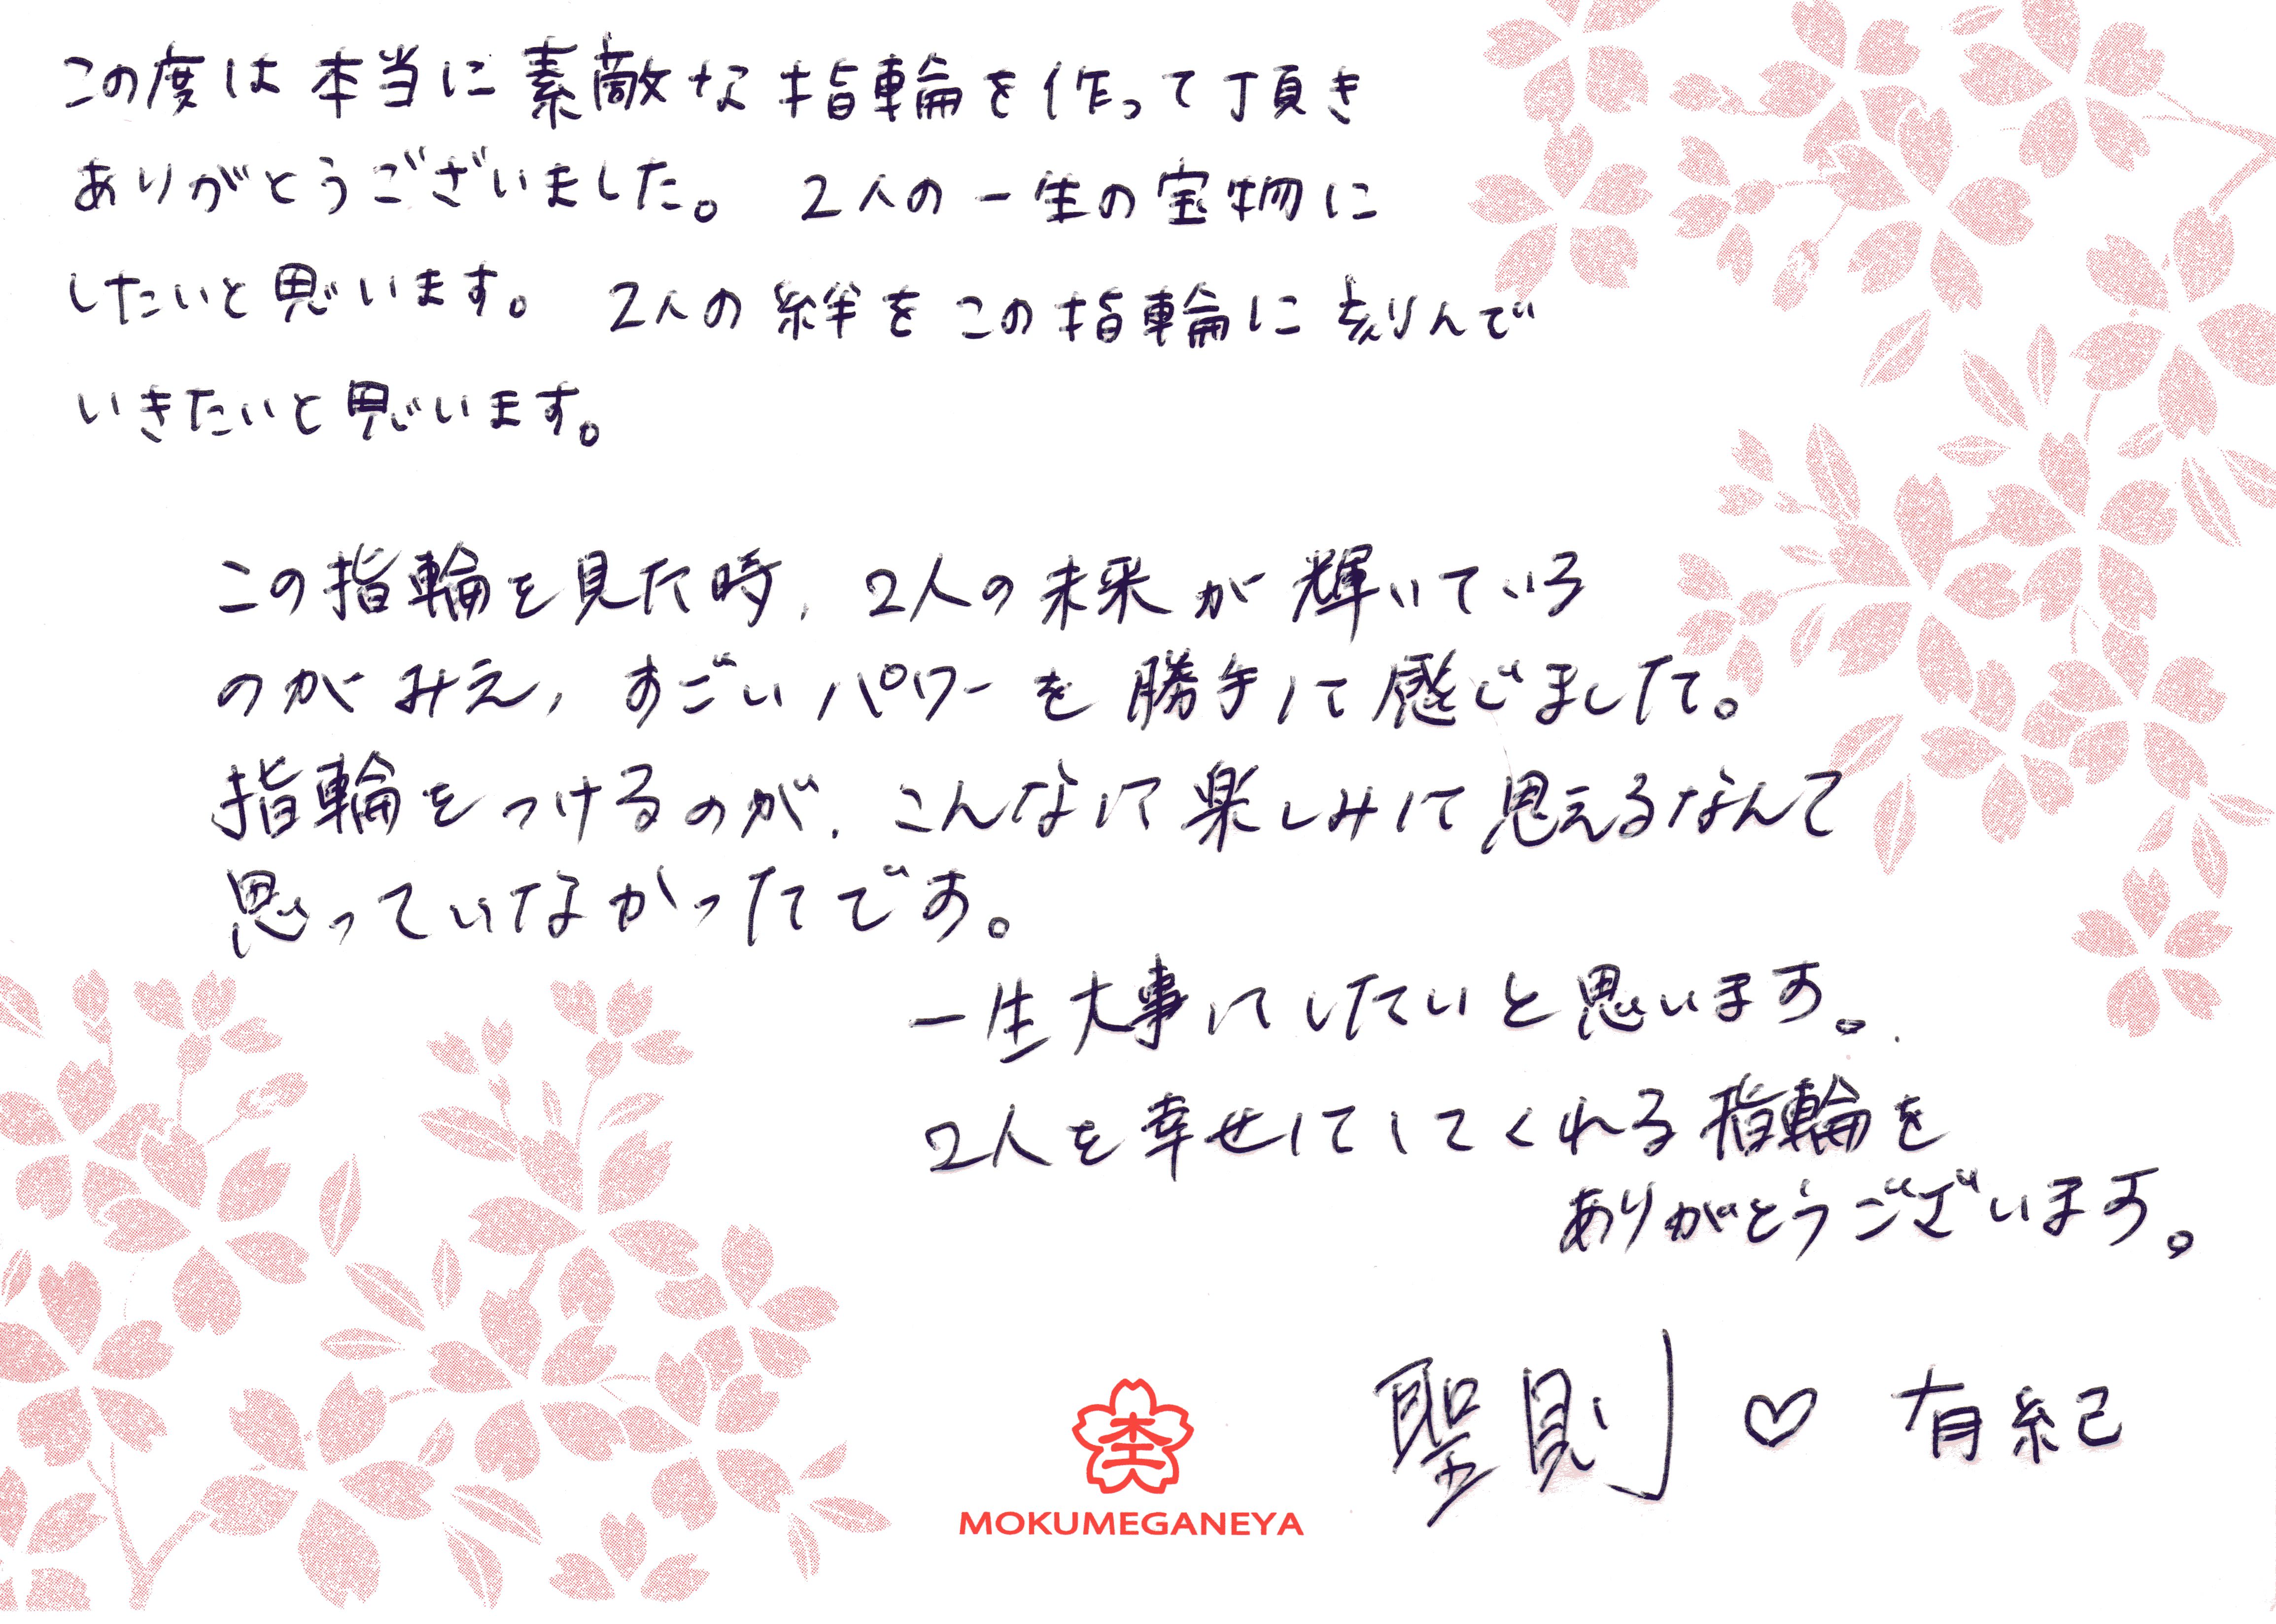 この度は本当に素敵な指輪を作って頂き
ありがとうございました。 2人の一生の宝物に
したいと思います。 2人の絆をこの指輪に刻んで
いきたいと思います。
この指輪を見た時、2人の未来が輝いている
のがみえ、すごいパワーを勝手に感じました。
指輪をつけるのが、こんなに楽しみに思えるなんて
思っていなかったです。
一生大事にしたいと思います。
2人を幸せにしてくれる指輪を
ありがとうございます。
聖則 ♡ 有紀
杢
MOKUMEGANEYA